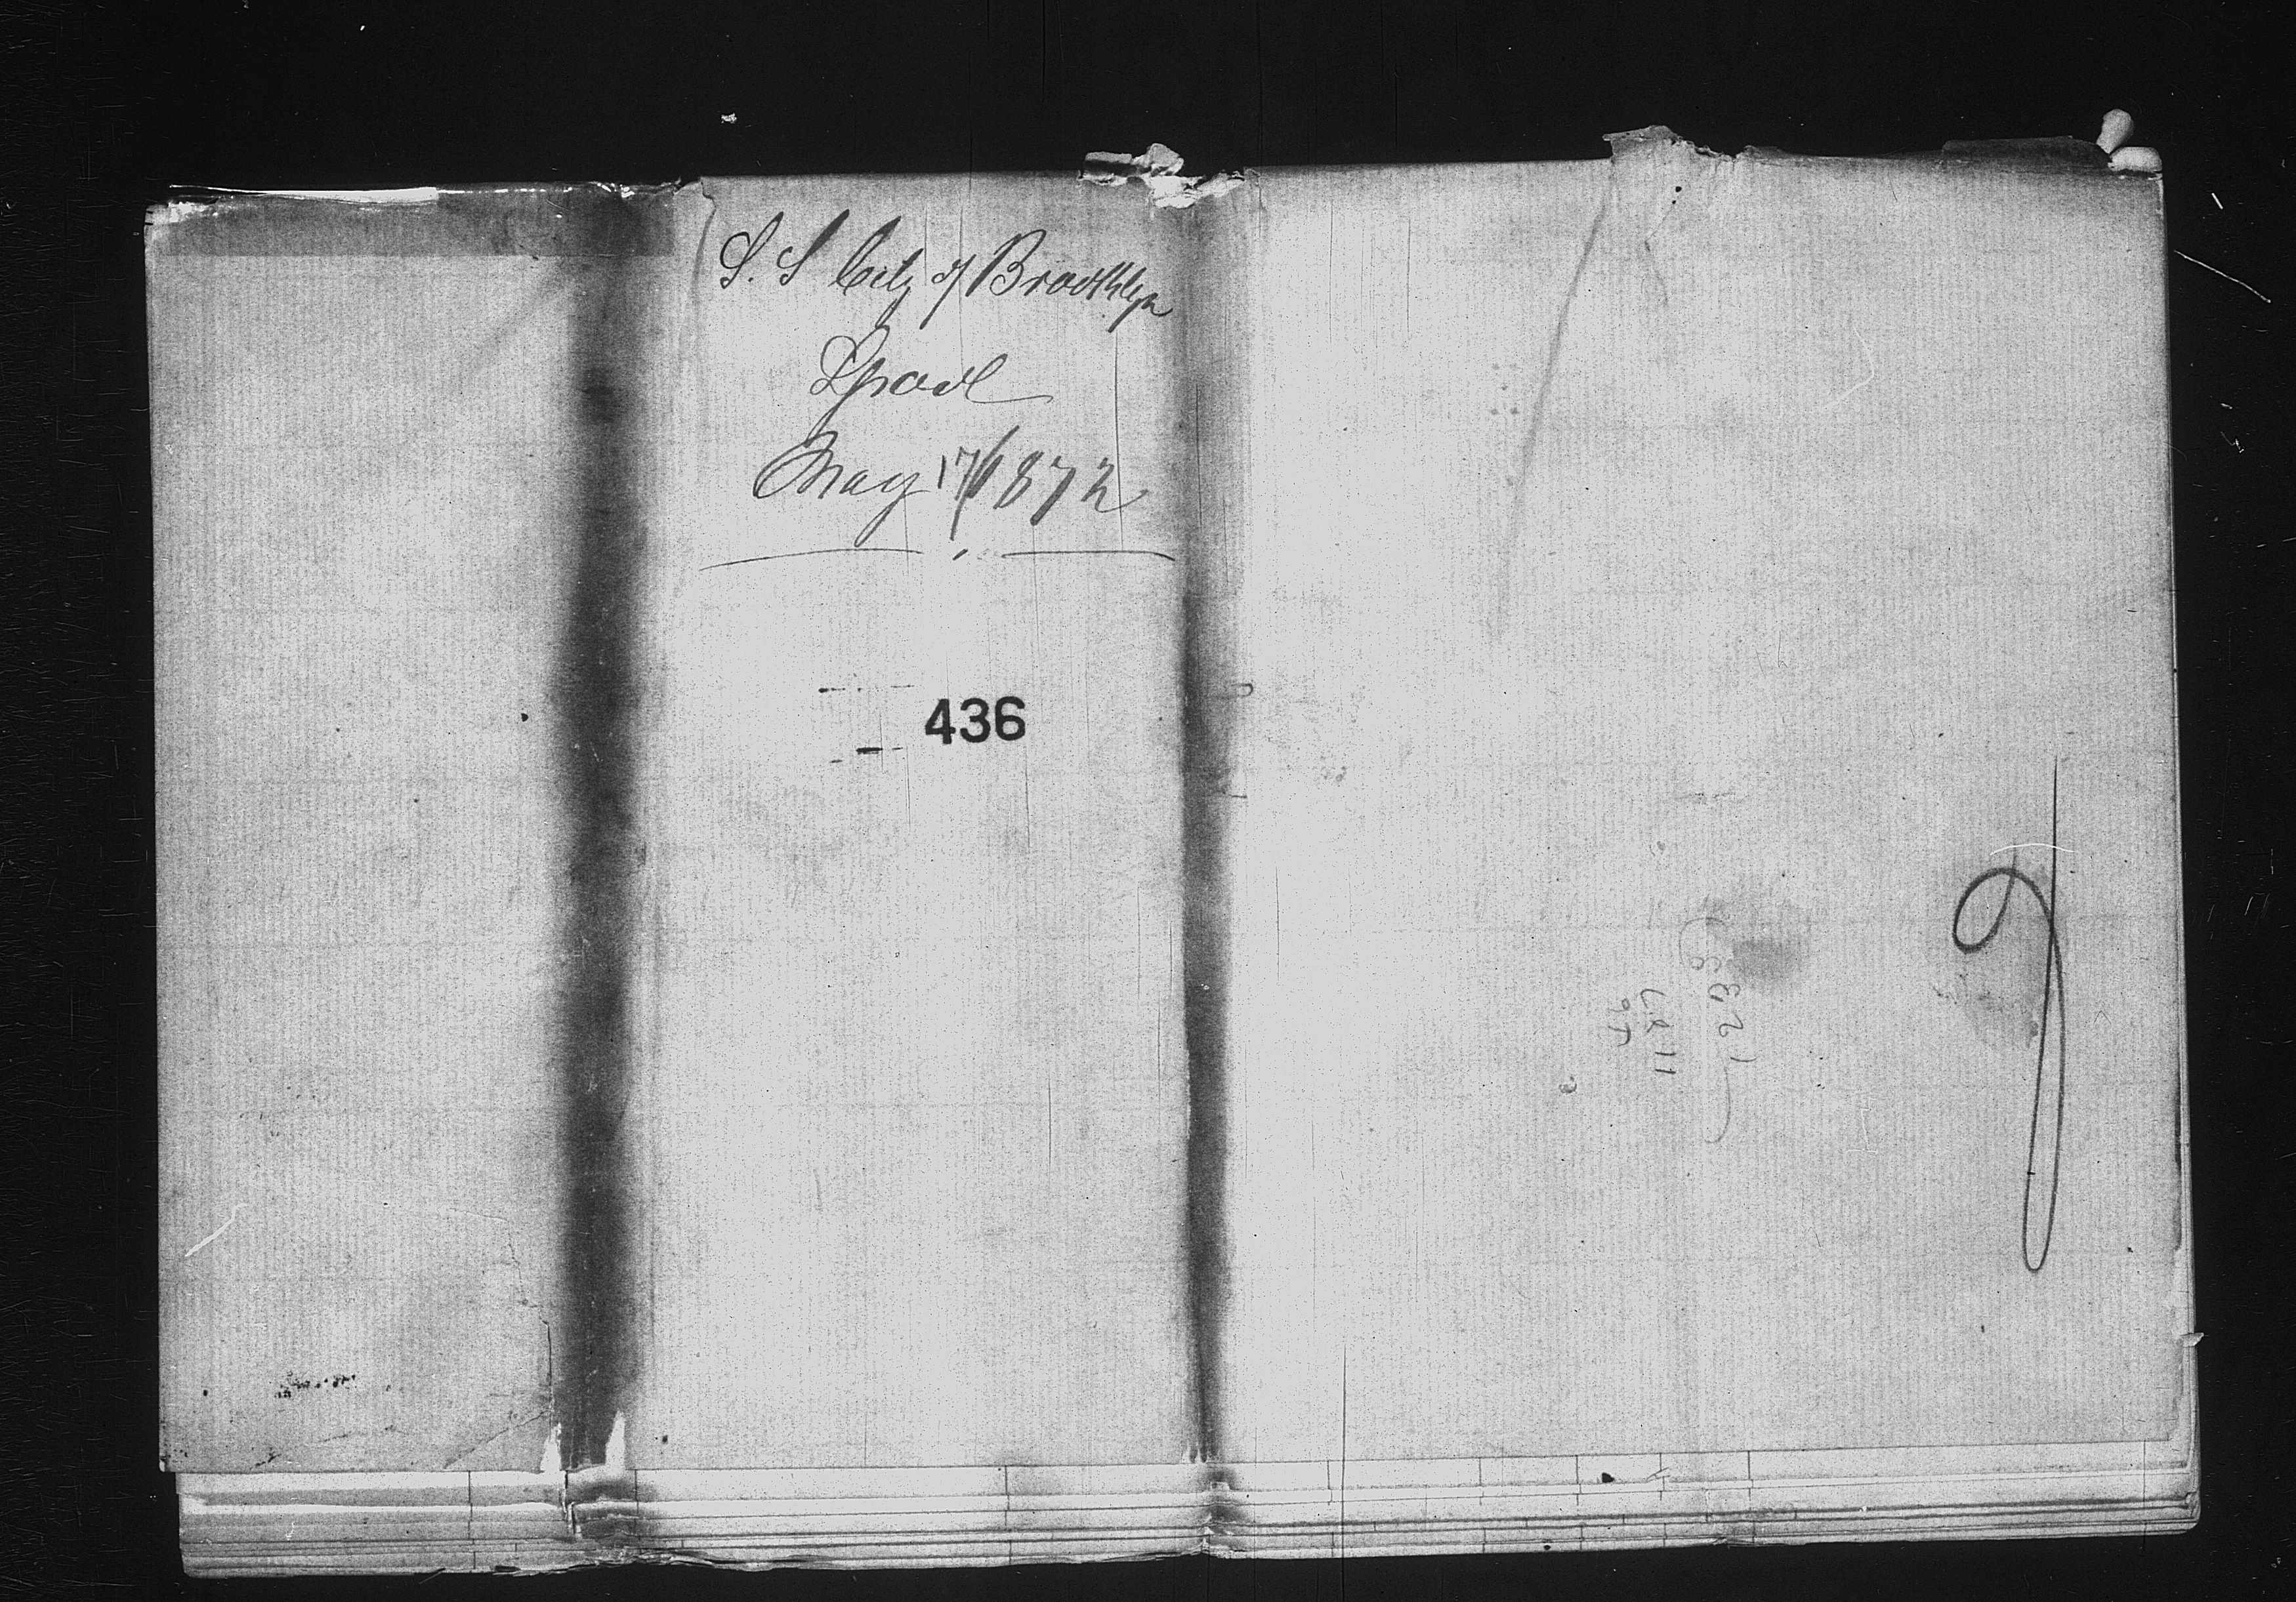 S. S City of Brooklyn
Lpool
May 17/1872
436
1239